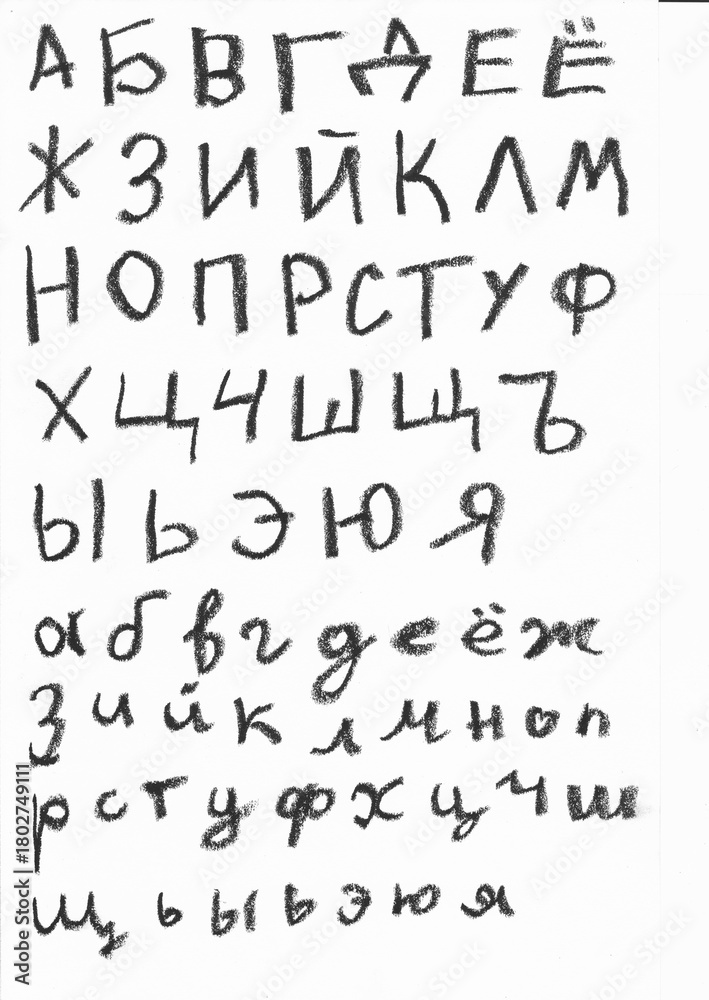 А Б В Г Д Е Ё
Ж З И Й К Л М
Н О П Р С Т У Ф
Х Ц Ч Ш Щ Ъ
Ы Ь Э Ю Я
а б в г д е ё ж
з и й к л м н о п
р с т у ф х ц ч ш
щ ь ы ь э ю я
Adobe Stock | #1802749111